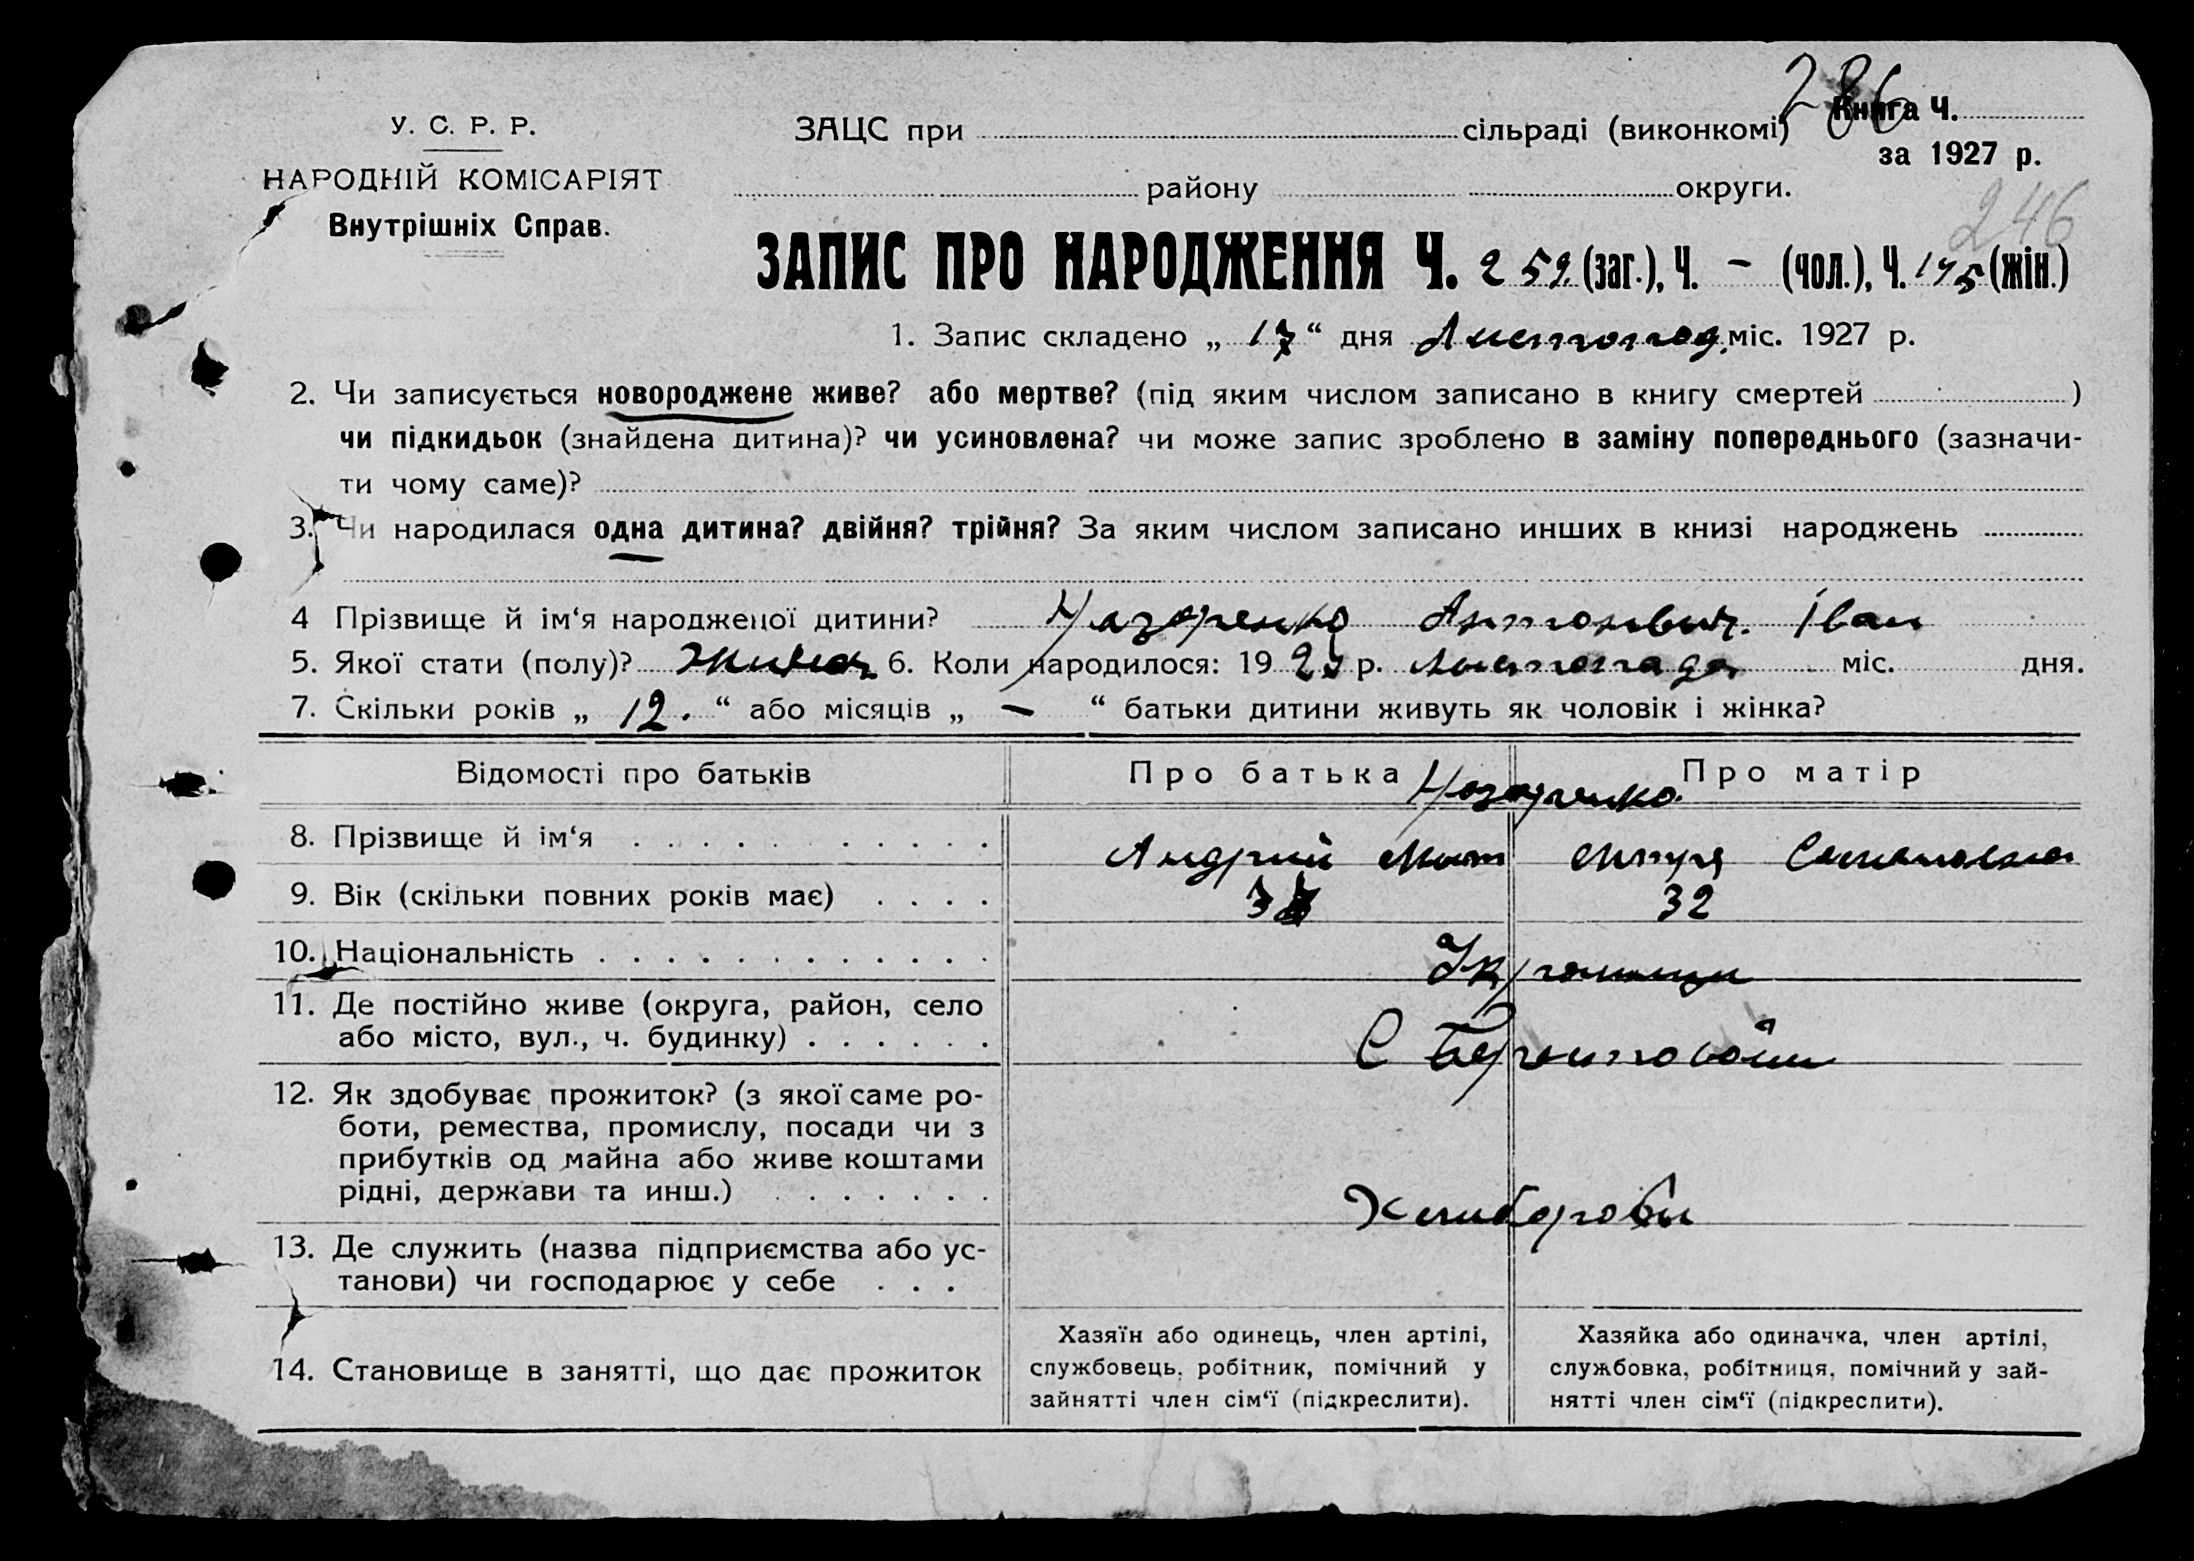 286
У. С. Р. Р.
НАРОДНІЙ КОМІСАРІЯТ
Внутрішніх Справ.
ЗАЦС при сільраді (виконкомі) Книга Ч.
за 1927 р.
району округи.
246
ЗАПИС ПРО НАРОДЖЕННЯ Ч. 259. (заг.), Ч. – (чол.), Ч. 145 (жін.)
1. Запис складено „ 17 “ дня Листопад. міс. 1927 р.
2. Чи записується новороджене живе? або мертве? (під яким числом записано в книгу смертей )
чи підкидьок (знайдена дитина)? чи усиновлена? чи може запис зроблено в заміну попереднього (зазначи-
ти чому саме)?
3. Чи народилася одна дитина? двійня? трійня? За яким числом записано инших в книзі народжень
4 Прізвище й ім‘я народженої дитини? Назаренко Іван
5. Якої стати (полу)? 6. Коли народилося: 1927 р. Листопада міс. дня.
7. Скільки років „ 12. “ або місяців „ – “ батьки дитини живуть як чоловік і жінка?
Відомості про батьків Про батька Про матір
Назаренко
8. Прізвище й ім‘я Андрий
9. Вік (скільки повних років має) 32
10. Національність Украинци
11. Де постійно живе (округа, район, село
або місто, вул., ч. будинку) С
12. Як здобуває прожиток? (з якої саме ро-
боти, ремества, промислу, посади чи з
прибутків од майна або живе коштами
рідні, держави та инш.) Хлибороби
13. Де служить (назва підприємства або ус-
танови) чи господарює у себе
14. Становище в занятті, що дає прожиток
Хазяїн або одинець, член артілі,
службовець, робітник, помічний у
зайнятті член сім‘ї (підкреслити).
Хазяйка або одиначка, член артілі,
службовка, робітниця, помічний у зай-
нятті член сім‘ї (підкреслити).